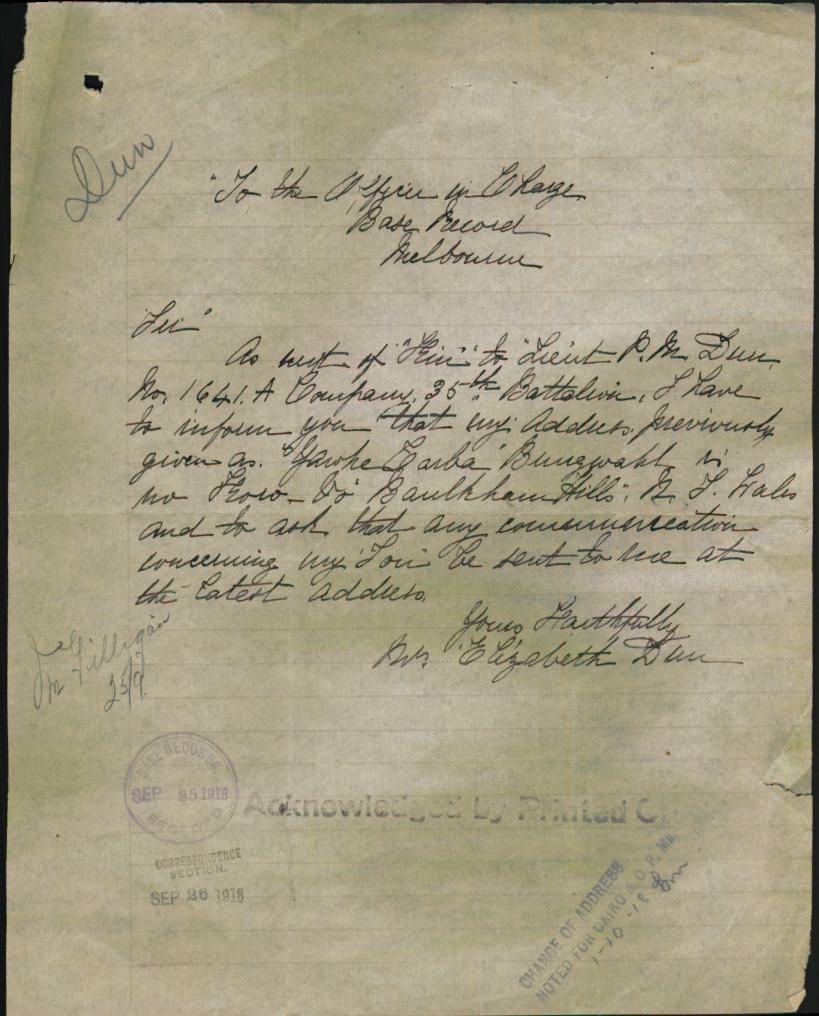 Dun
"To the Officer in Charge
Base Record
Melbourne
Sir"
As next of "Kin" to "Lieut P. M. Dun
No. 1641. A Company. 35th Battalion, I have
to inform you that my Address. previously
given as. "Yawhe Bungwahl is
no Know - to Baulkham "Hills". N. S. Wales
and to ask that any communication
concerning my Son be sent to me at
the latest address.
Yours Faithfully
Mrs Elizabeth Dun
25/9
BASE RECORDS
SEP 25 1918
RECEIVED
Acknowledged by Printed
CORRESPONDENCE
SECTION.
SEP 26 1918
CHANGE OF ADDRESS
NOTED FOR CAIRO & O. P.
1-10-18